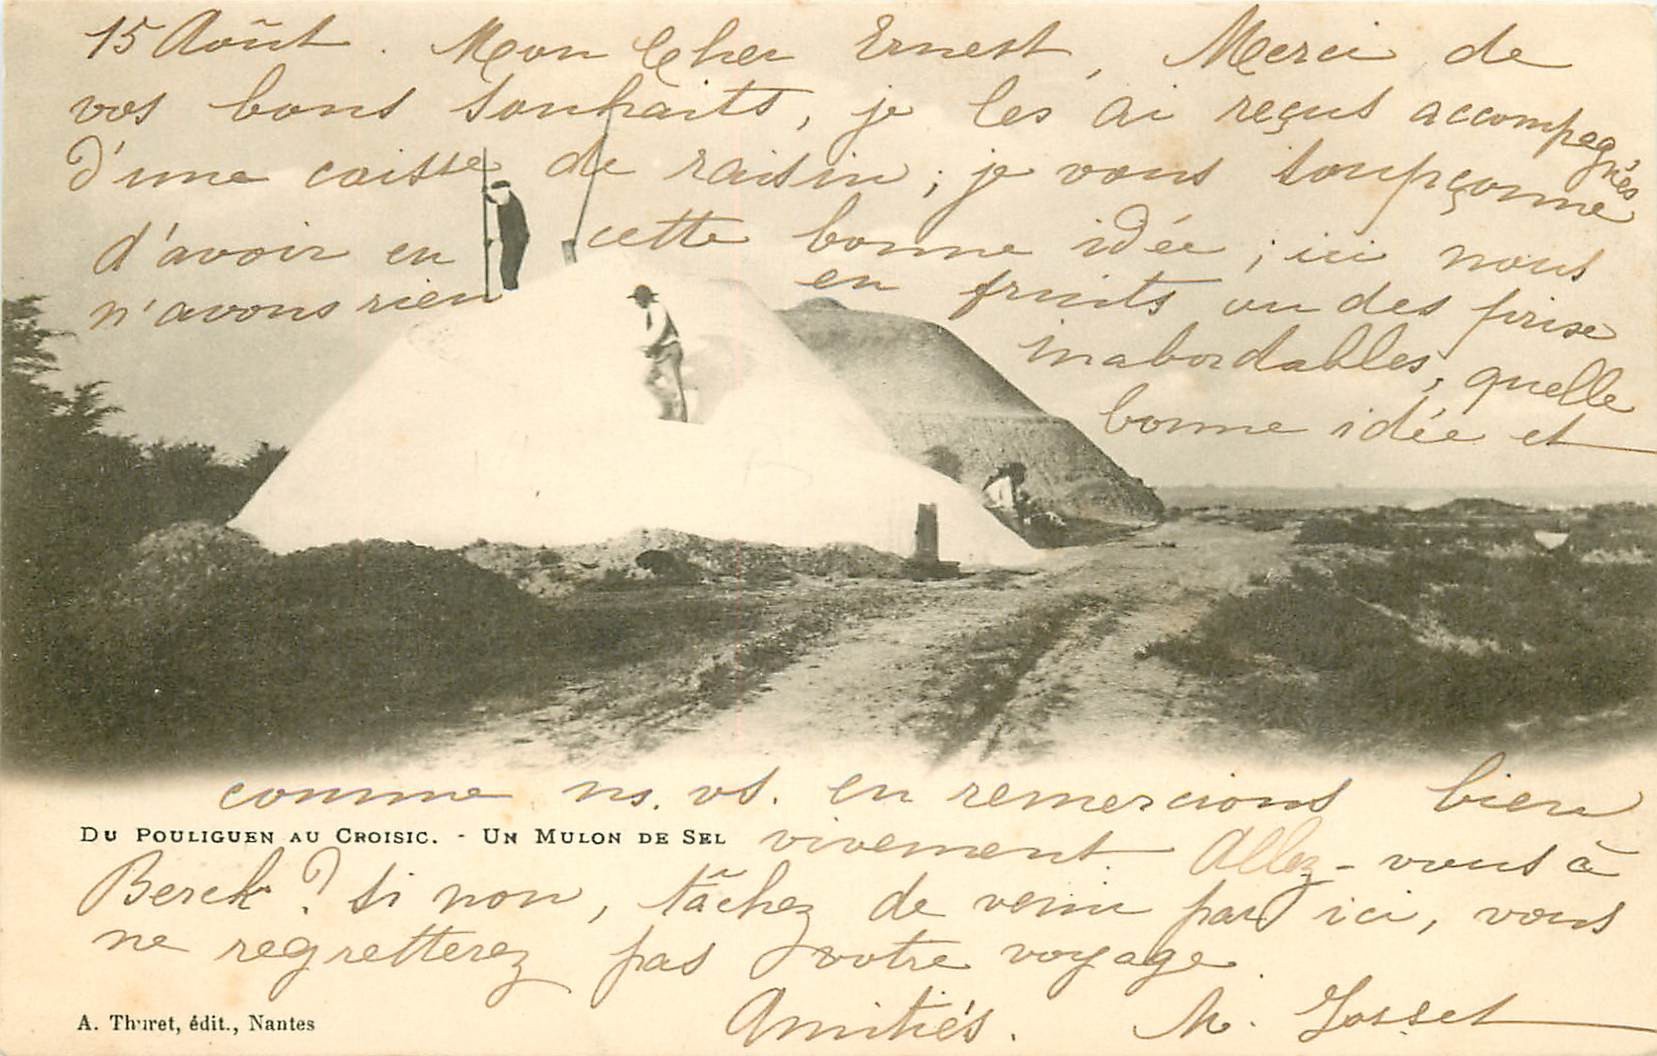 15 Août. Mon Cher Ernest, Merci de
vos bons souhaits, je les ai reçus accompagnés
d'une caisse de raisin ; je vous soupçonne
d'avoir eu cette bonne idée ; ici nous
n'avons rien en fruits ou des prix
inabordables, quelle
bonne idée et
comme ns. vs. en remercions bien
DU POULIGUEN AU CROISIC. - UN MULON DE SEL
vivement. Allez-vous à
Berck ? Si non, tâchez de venir par ici, vous
ne regretterez pas votre voyage.
A. Thuret, édit., Nantes
Amitiés. M. Josset